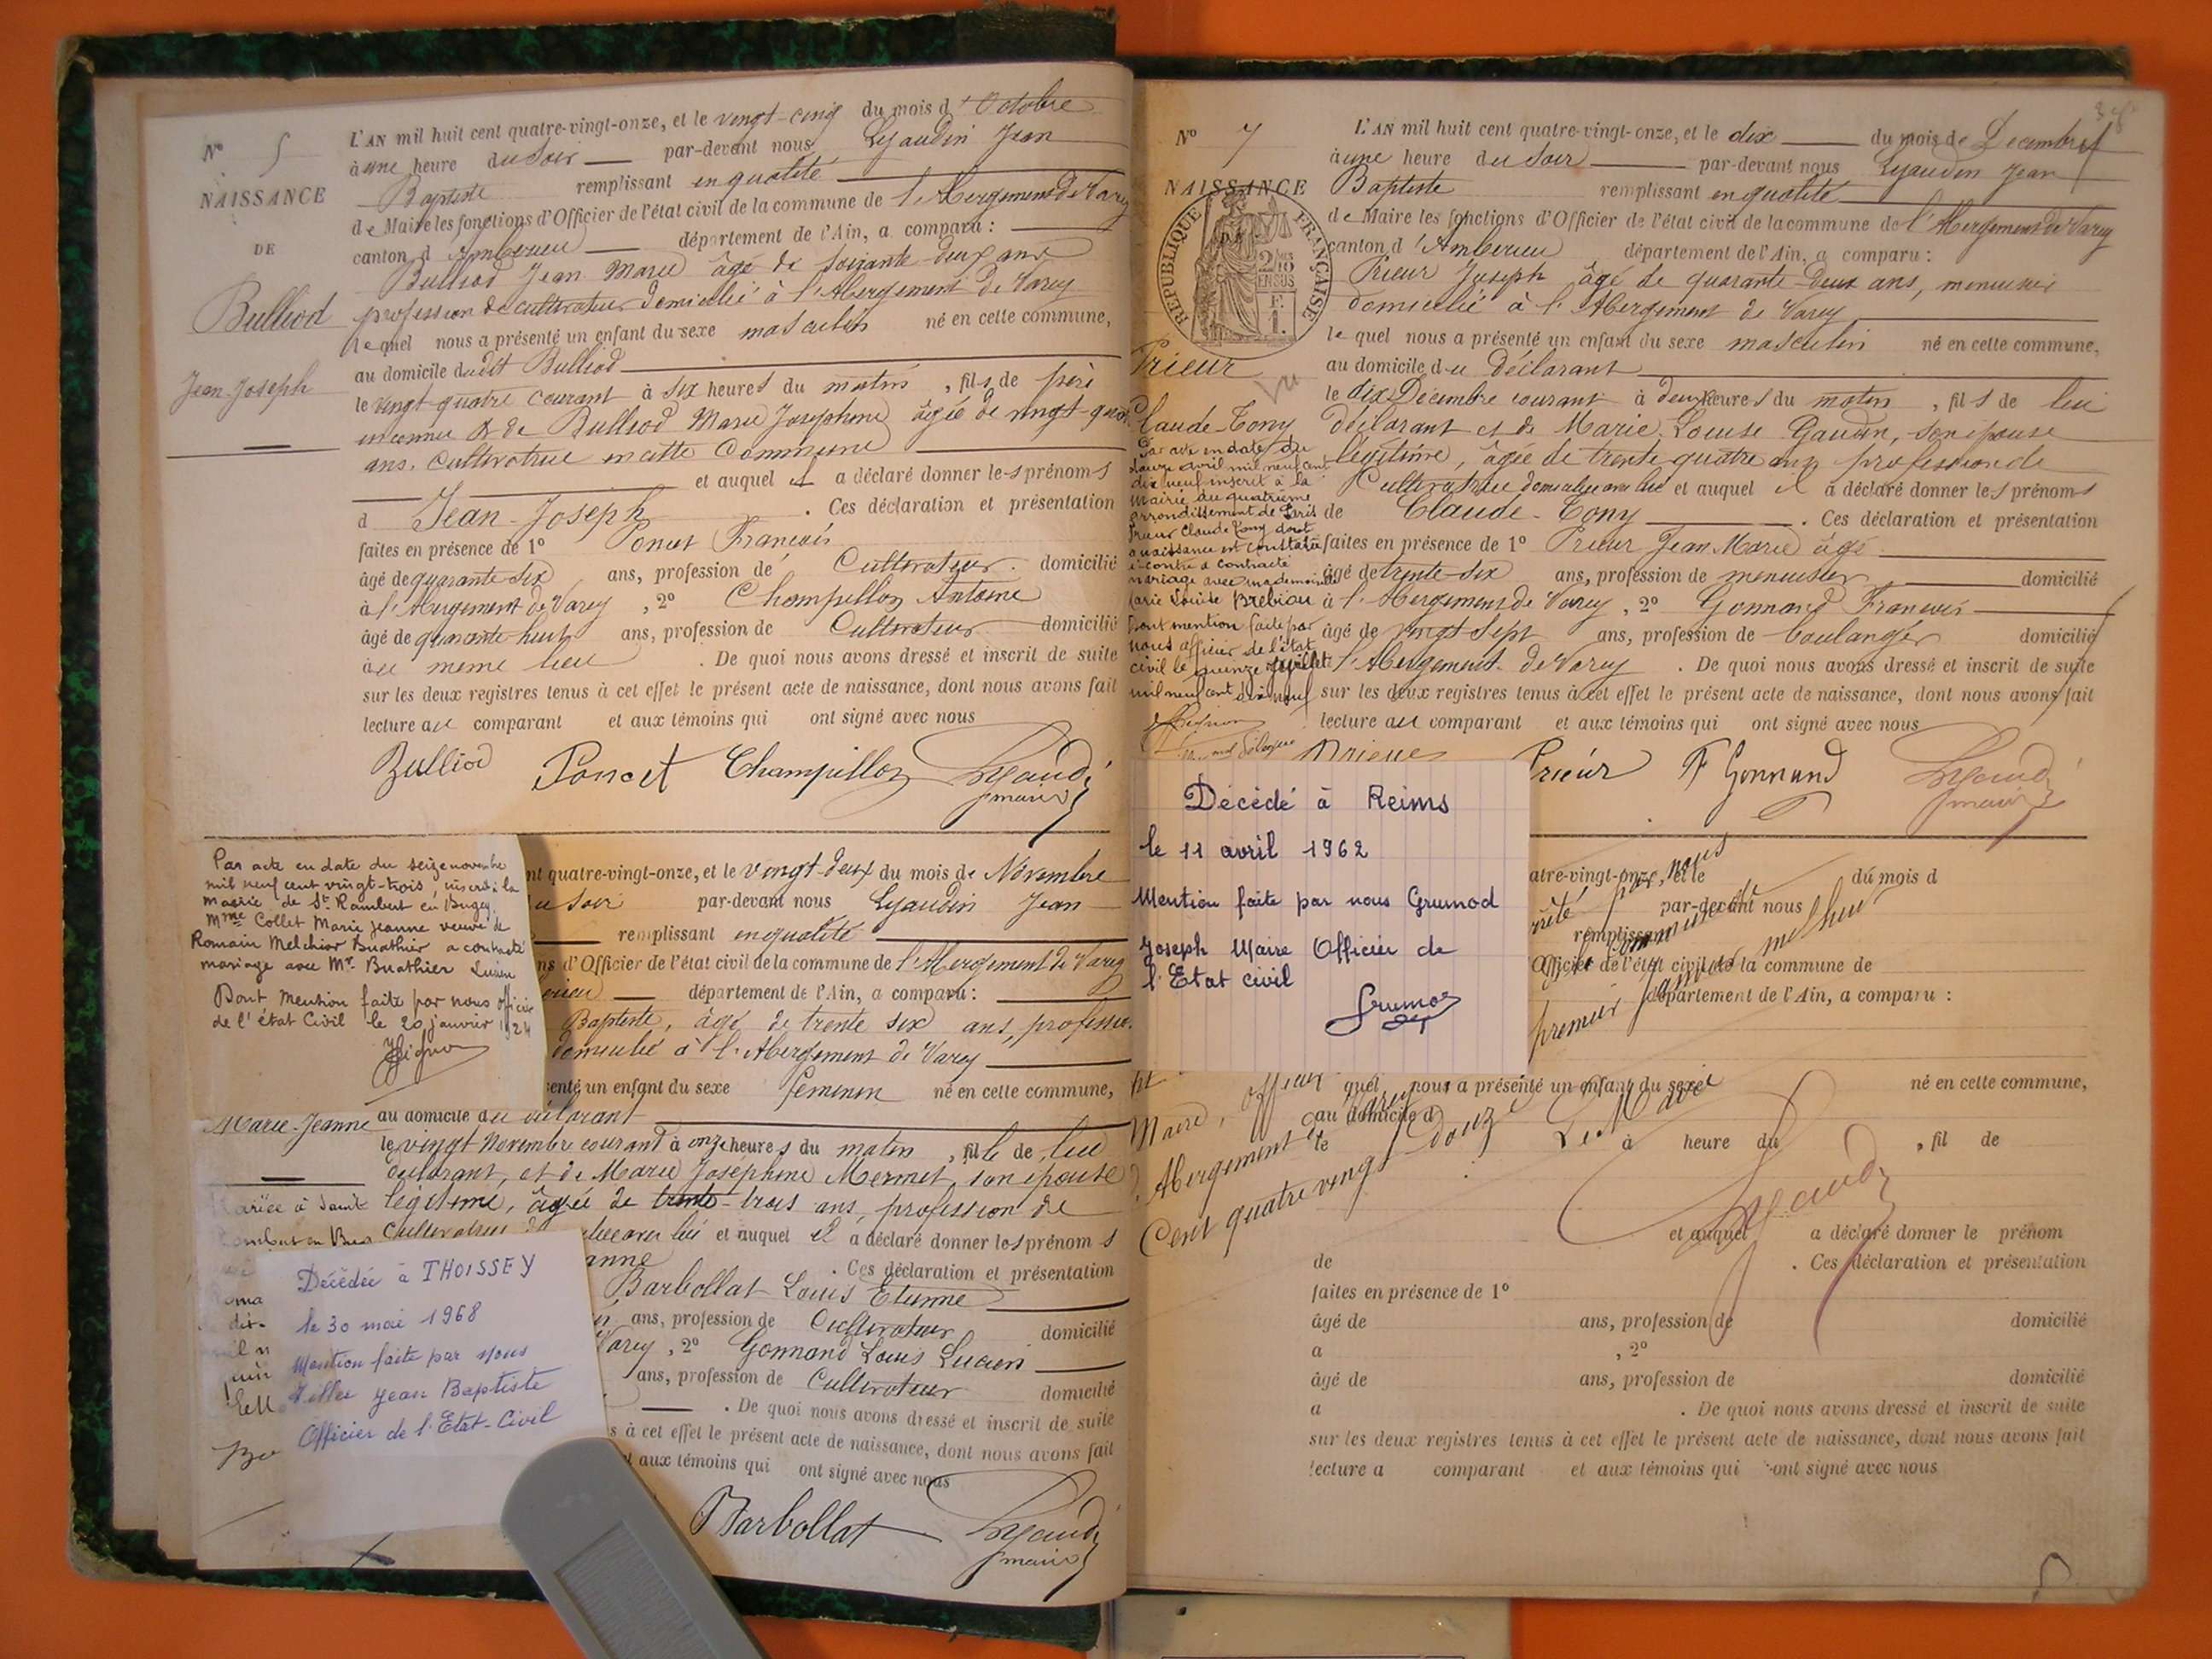 N° 5
NAISSANCE
DE
Bulliod
Jean-Joseph
L'AN mil huit cent quatre-vingt-onze, et le vingt-cinq du mois d'Octobre
à une heure du soir par-devant nous Lyaudin Jean
Baptiste remplissant en qualité
de Maire les fonctions d'Officier de l'état civil de la commune de l'Abergement de Varey
canton d'Ambérieu département de l'Ain, a comparu :
Bulliod Jean Marie âgé de soixante-deux ans
profession de cultivateur domicilié à l'Abergement de Varey
lequel nous a présenté un enfant du sexe masculin né en cette commune,
au domicile dudit Bulliod
le vingt-quatre courant à six heures du matin, fils de père
inconnu & de Bulliod Marie Josephine âgée de vingt-quatre
ans, cultivatrice en cette Commune
et auquel il a déclaré donner les prénoms
d Jean-Joseph . Ces déclaration et présentation
faites en présence de 1° Poncet Francois
âgé de quarante six ans, profession de Cultivateur domicilié
à l'Abergement de Varey, 2° Champillon Antoine
âgé de quarante-huit ans, profession de Cultivateur domicilié
au meme lieu . De quoi nous avons dressé et inscrit de suite
sur les deux registres tenus à cet effet le présent acte de naissance, dont nous avons fait
lecture au comparant et aux témoins qui ont signé avec nous
Bulliod Poncet Champillon Lyaudin
maire
Par acte en date du seize novembre
mil neuf cent vingt-trois, inscrit à la
mairie de St Rambert en Bugey,
Mme Collet Marie Jeanne veuve de
Romain Melchior Buathier a contracté
mariage avec Mr. Buathier Lucien
Dont mention faite par nous officier
de l'état Civil le 20 janvier 1924
nt quatre-vingt-onze, et le vingt-deux du mois de Novembre
u soir par-devant nous Lyaudin Jean
remplissant en qualité
ns d'Officier de l'état civil de la commune de l'Abergement de Varey
département de l'Ain, a comparu :
Baptiste, âgé de trente six ans, profession
domicilié à l'Abergement de Varey
senté un enfant du sexe feminin né en cette commune,
Marie-Jeanne
au domicile du déclarant
le vingt Novembre courant à onze heures du matin, fille de lui
déclarant, et de Marie Joséphine Mermet, son épouse
légitime, âgée de trente-trois ans, profession de
et auquel il a déclaré donner les prénoms
anne . Ces déclaration et présentation
Barbollat Louis Etienne
ans, profession de Cultivateur domicilié
Varey, 2° Gonnand Louis Lucien
ans, profession de Cultivateur domicilié
. De quoi nous avons dressé et inscrit de suite
s à cet effet le présent acte de naissance, dont nous avons fait
aux témoins qui ont signé avec nous
Barbollat Lyaudin
maire
Mariée à Saint
Décédée à THOISSEY
le 30 mai 1968
Mention faite par nous
Jean Baptiste
Officier de l'Etat-Civil
N° 7
NAISSANCE
RÉPUBLIQUE FRANÇAISE
2/10
EN SUS
F.
1.
Prieur
Claude-Tony
L'AN mil huit cent quatre-vingt-onze, et le dix du mois de Decembre
à une heure du soir par-devant nous Lyaudin Jean
Baptiste remplissant en qualité
de Maire les fonctions d'Officier de l'état civil de la commune de l'Abergement de Varey
canton d'Ambérieu département de l'Ain, a comparu :
Prieur Joseph âgé de quarante-deux ans, menuisier
domicilié à l'Abergement de Varey
lequel nous a présenté un enfant du sexe masculin né en cette commune,
au domicile du déclarant
le dix Décembre courant à deux heures du matin, fils de lui
déclarant et de Marie Louise Gaudin, son épouse
légitime, âgée de trente quatre ans profession de
Cultivatrice domiciliée avec lui et auquel il a déclaré donner les prénoms
de Claude-Tony . Ces déclaration et présentation
faites en présence de 1° Prieur Jean Marie âgé
âgé de trente-six ans, profession de menuisier domicilié
à l'Abergement de Varey, 2° Gonnand Francois
âgé de vingt sept ans, profession de boulanger domicilié
l'Abergement de Varey . De quoi nous avons dressé et inscrit de suite
sur les deux registres tenus à cet effet le présent acte de naissance, dont nous avons fait
lecture au comparant et aux témoins qui ont signé avec nous
Prieur Prieur F Gonnand Lyaudin
maire
Par acte en date du
douze avril mil neuf cent
dix neuf inscrit à la
Mairie du quatrième
arrondissement de Paris
Prieur Claude Tony dont
la naissance est constatée
ci-contre a contracté
mariage avec mademoiselle
Marie Louise Brebion
Dont mention faite par
nous officier de l'état
civil le quinze juillet
mil neuf cent dix neuf
Décédé à Reims
le 11 avril 1962
Mention faite par nous Grumod
Joseph Maire Officier de
l'Etat civil
Grumod
atre-vingt-onze, et le du mois d
par-devant nous
remplissant
Officier de l'état civil de la commune de
département de l'Ain, a comparu :
quel nous a présenté un enfant du sexe né en cette commune,
au domicile d
le à heure du , fil de
et auquel a déclaré donner le prénom
de . Ces déclaration et présentation
faites en présence de 1°
âgé de ans, profession de domicilié
a , 2°
âgé de ans, profession de domicilié
a . De quoi nous avons dressé et inscrit de suite
sur les deux registres tenus à cet effet le présent acte de naissance, dont nous avons fait
lecture a comparant et aux témoins qui ont signé avec nous
par nous
premier janvier mil huit
Maire, officier
Abergement Varey Le Maire
Cent quatre vingt douze
Lyaudin